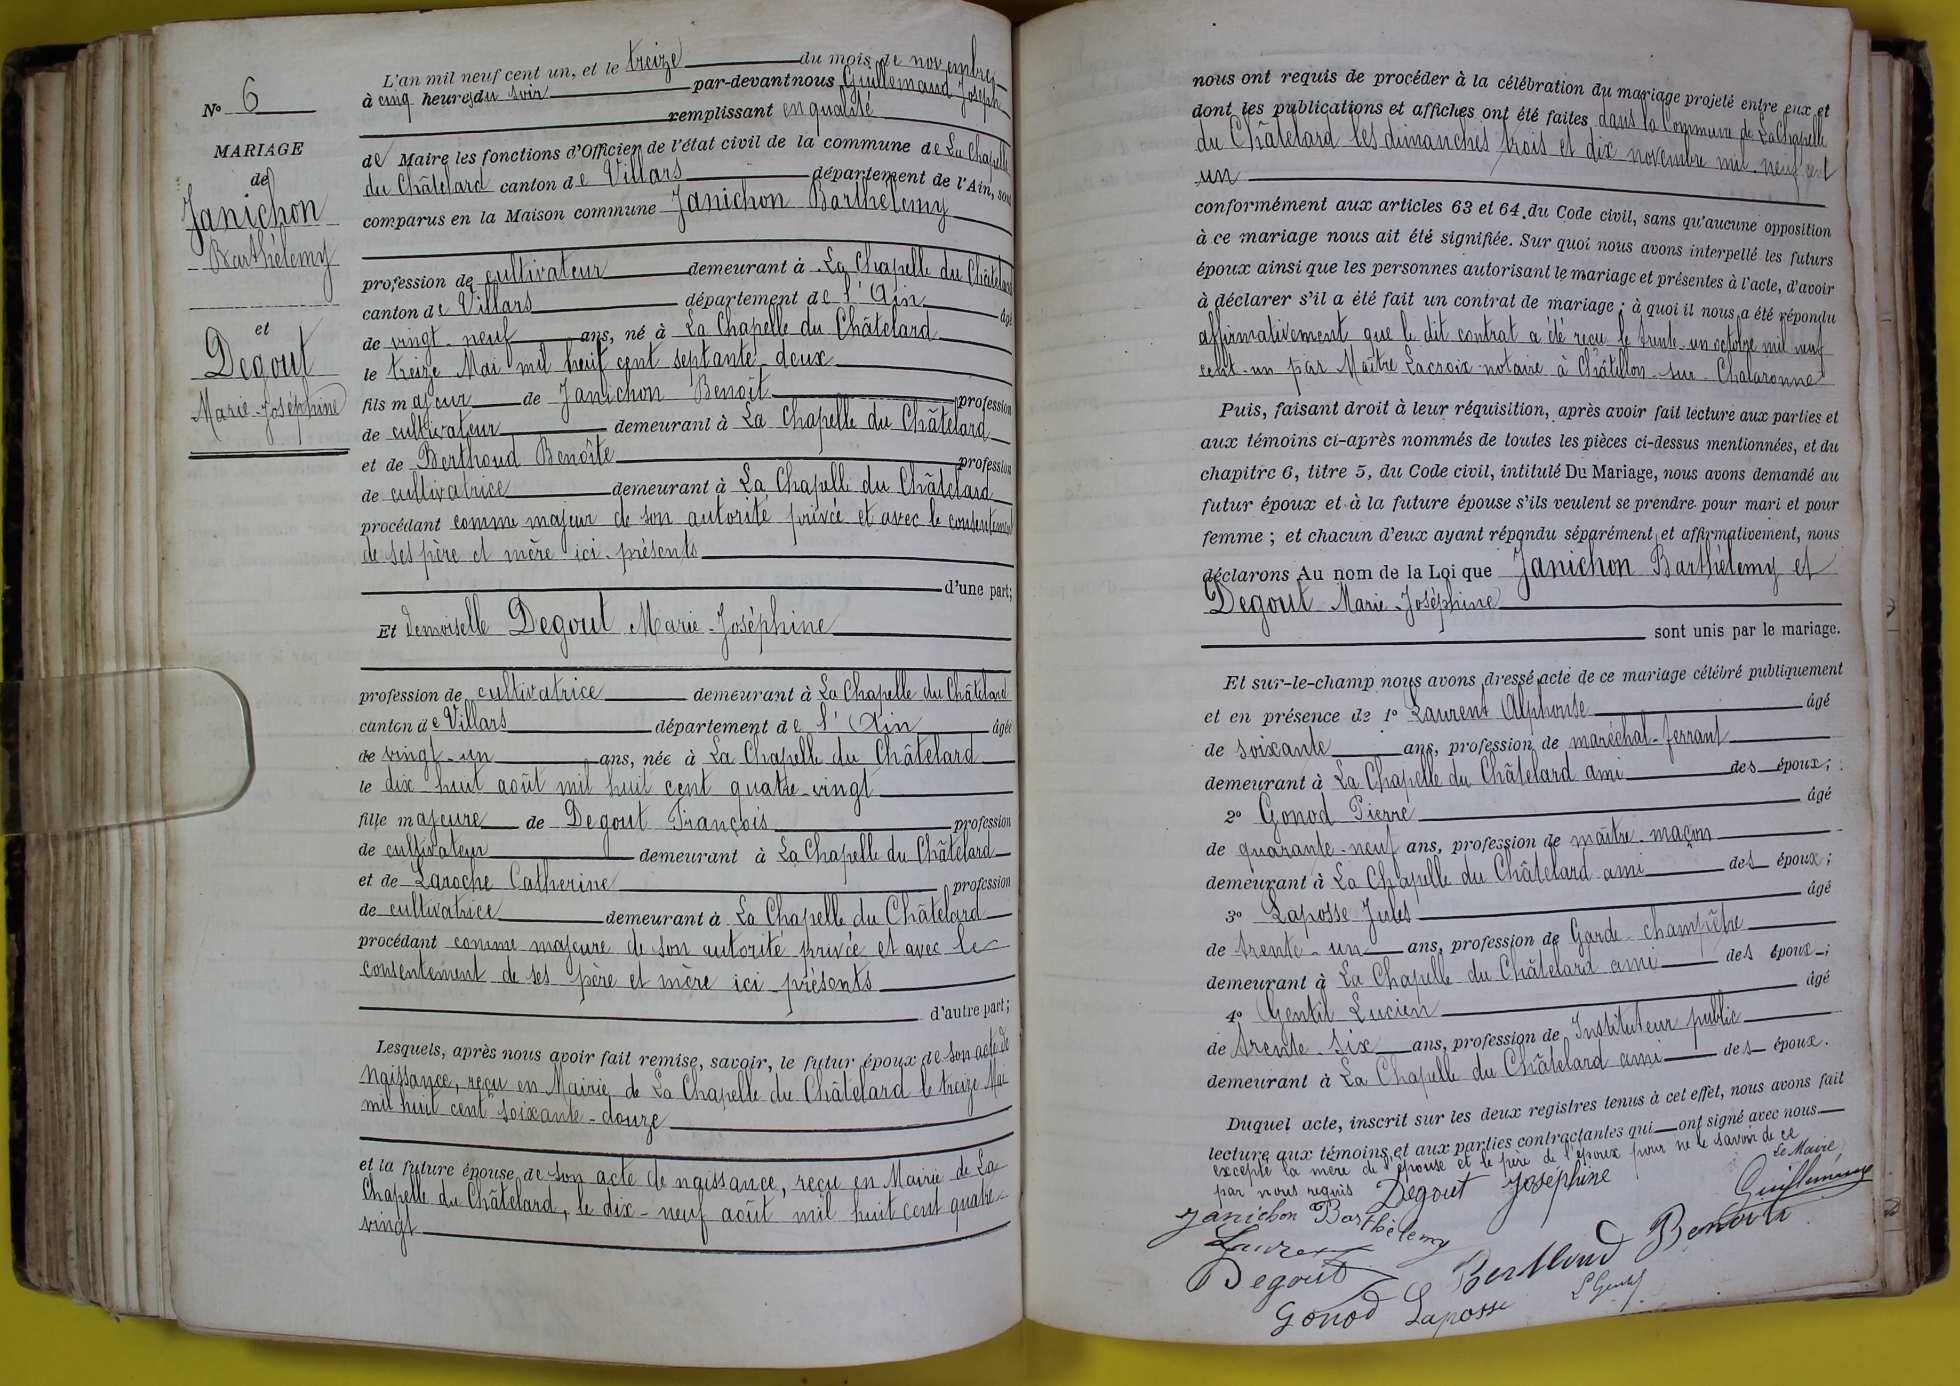 N° 6
MARIAGE
de
Janichon
Barthélemy
et
Degout
Marie-Joséphine
L'an mil neuf cent un, et le treize du mois de novembre
à cinq heures du soir par-devant nous Guillemaud Joseph
remplissant en qualité
de Maire les fonctions d'Officier de l'état civil de la commune de La Chapelle
du Châtelard canton de Villars département de l'Ain, sont
comparus en la Maison commune Janichon Barthélemy
profession de cultivateur demeurant à La Chapelle du Châtelard
canton de Villars département de l'Ain âgé
de vingt-neuf ans, né à La Chapelle du Châtelard
le treize Mai mil huit cent septante-deux
fils majeur de Janichon Benoît profession
de cultivateur demeurant à La Chapelle du Châtelard
et de Berthoud Benoîte profession
de cultivatrice demeurant à La Chapelle du Châtelard
procédant comme majeur de son autorité privée et avec le consentement
de ses père et mère ici présents
d'une part;
Et demoiselle Degout Marie-Joséphine
profession de cultivatrice demeurant à La Chapelle du Châtelard
canton de Villars département de l'Ain âgée
de vingt-un ans, née à La Chapelle du Châtelard
le dix-huit août mil huit cent quatre-vingt
fille majeure de Degout François profession
de cultivateur demeurant à La Chapelle du Châtelard
et de Laroche Catherine profession
de cultivatrice demeurant à La Chapelle du Châtelard
procédant comme majeure de son autorité privée et avec le
consentement de ses père et mère ici présents
d'autre part;
Lesquels, après nous avoir fait remise, savoir, le futur époux de son acte de
naissance, reçu en Mairie de La Chapelle du Châtelard le treize Mai
mil huit cent soixante-douze
et la future épouse de son acte de naissance, reçu en Mairie de La
Chapelle du Châtelard, le dix-neuf août mil huit cent quatre-
vingt
nous ont requis de procéder à la célébration du mariage projeté entre eux et
dont les publications et affiches ont été faites dans la Commune de La Chapelle
du Châtelard les dimanches trois et dix novembre mil neuf cent
un
conformément aux articles 63 et 64 du Code civil, sans qu'aucune opposition
à ce mariage nous ait été signifiée. Sur quoi nous avons interpellé les futurs
époux ainsi que les personnes autorisant le mariage et présentes à l'acte, d'avoir
à déclarer s'il a été fait un contrat de mariage ; à quoi il nous a été répondu
affirmativement que le dit contrat a été reçu le trente-un octobre mil neuf
cent-un par Maître Lacroix notaire à Châtillon-sur-Chalaronne
Puis, faisant droit à leur réquisition, après avoir fait lecture aux parties et
aux témoins ci-après nommés de toutes les pièces ci-dessus mentionnées, et du
chapitre 6, titre 5, du Code civil, intitulé Du Mariage, nous avons demandé au
futur époux et à la future épouse s'ils veulent se prendre pour mari et pour
femme ; et chacun d'eux ayant répondu séparément et affirmativement, nous
déclarons Au nom de la Loi que Janichon Barthélemy et
Degout Marie-Joséphine
sont unis par le mariage.
Et sur-le-champ nous avons dressé acte de ce mariage célébré publiquement
et en présence de 1° Laurent Alphonse âgé
de soixante ans, profession de maréchal-ferrant
demeurant à La Chapelle du Châtelard ami des époux ;
2° Gonod Pierre âgé
de quarante-neuf ans, profession de maître-maçon
demeurant à La Chapelle du Châtelard ami des époux ;
3° Laposse Jules âgé
de trente-un ans, profession de Garde-champêtre
demeurant à La Chapelle du Châtelard ami des époux ;
4° Gentil Lucien âgé
de trente-six ans, profession de Instituteur public
demeurant à La Chapelle du Châtelard ami des époux.
Duquel acte, inscrit sur les deux registres tenus à cet effet, nous avons fait
lecture aux témoins et aux parties contractantes qui ont signé avec nous
excepté la mère de l'épouse et le père de l'époux pour ne le savoir de ce
par nous requis
Le Maire
Degout Joséphine
Guillemaud
Janichon Barthélemy
Laurent
Berthoud Benoite
Degout
Gonod Laposse
L Gentil